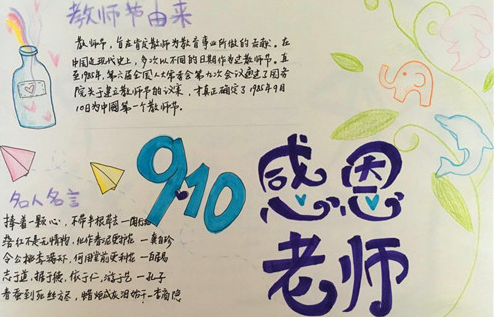 教师节由来
教师节，旨在肯定教师为教育事业所做的贡献。在
中国近现代史上，多次以不同的日期作为过教师节。直
至1985年，第六届全国人大常委会第九次会议通过了国务
院关于建立教师节的议案，才真正确定了1985年9月
10日为中国第一个教师节。
9.10
感恩
老师
名人名言
捧着一颗心，不带半根草去—陶行知
落红不是无情物，化作春泥更护花—龚自珍
令公桃李满环，何用堂前更种花—白居易
志于道，据于德，依于仁，游于艺—孔子
春蚕到死丝方尽，蜡炬成灰泪始干—李商隐